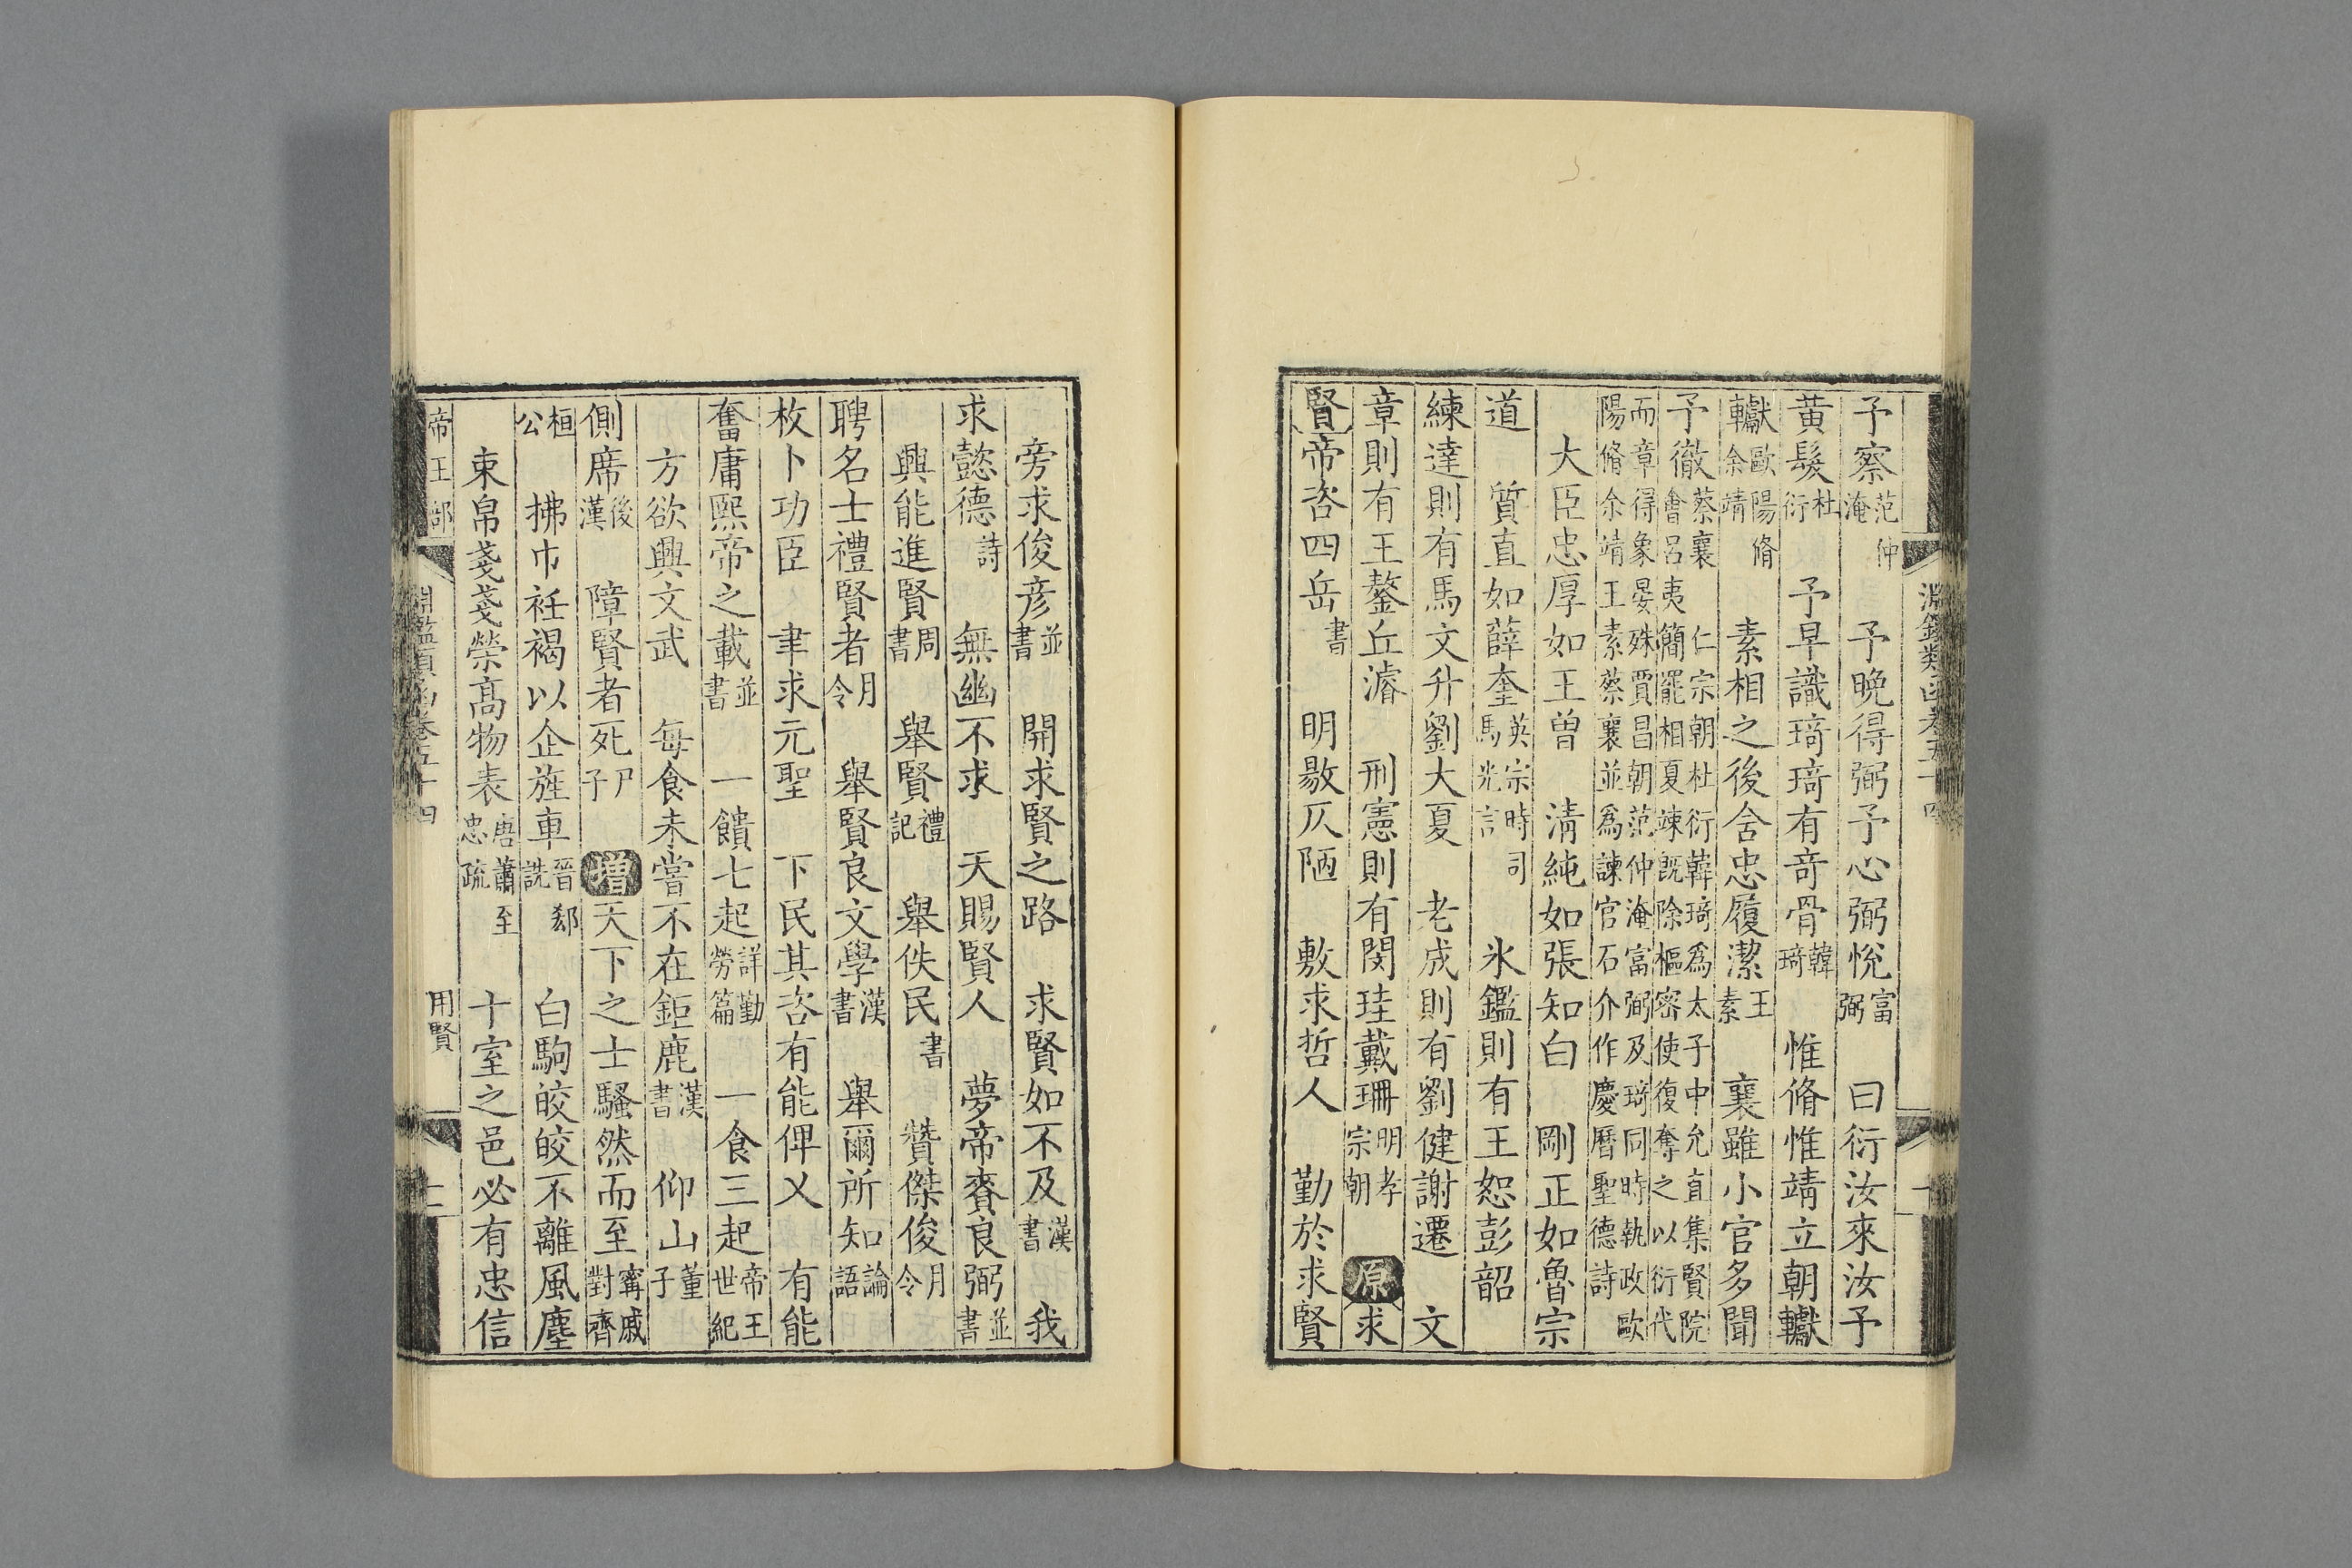 淵鑑類函卷五十四
予察范仲淹 予晚得弼予心弼悅富弼 曰衍汝來汝予
黃髮杜衍 予早識琦琦有奇骨韓琦 惟脩惟靖立朝轥
轥歐陽脩余靖 素相之後含忠履潔王素 襄雖小官多聞
予徹蔡襄 仁宗朝杜衍韓琦爲太子中允直集賢院會呂夷簡罷相夏竦既除樞密使復奪之以衍代
而章得象晏殊賈昌朝范仲淹富弼及琦同時執政歐陽脩余靖王素蔡襄並爲諫官石介作慶曆聖德詩
大臣忠厚如王曾 淸純如張知白 剛正如魯宗
道 質直如薛奎英宗時司馬光言 氷鑑則有王恕彭韶
練達則有馬文升劉大夏 老成則有劉健謝遷 文
章則有王鏊丘濬 刑憲則有閔珪戴珊明孝宗朝 原求
賢帝咨四岳書 明敭仄陋 敷求哲人 勤於求賢
旁求俊彦並書 開求賢之路 求賢如不及漢書 我
求懿德詩 無幽不求 天賜賢人 夢帝賚良弼並書
興能進賢周書 舉賢禮記 舉佚民書 贊傑俊月令
聘名士禮賢者月令 舉賢良文學漢書 舉爾所知論語
枚卜功臣 聿求元聖 下民其咨有能俾乂 有能
奮庸熙帝之載並書 一饋七起詳勤勞篇 一食三起帝王世紀
方欲興文武 每食未嘗不在鉅鹿漢書 仰山董子
側席後漢 障賢者死尸子 增天下之士騷然而至甯戚對齊
桓公 拂巾衽褐以企旌車晉郄詵 白駒皎皎不離風塵
束帛戔戔榮高物表唐蕭至忠疏 十室之邑必有忠信
帝王部 淵鑑類函卷五十四 用賢 十二